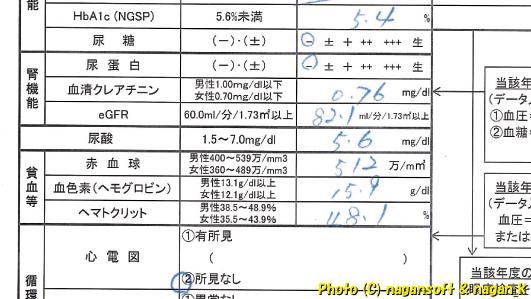 能
HbA1c (NGSP) 5.6%未満 5.4 %
尿 糖 (−)・(±) − ± + ++ +++ 生
尿 蛋 白 (−)・(±) − ± + ++ +++ 生
腎機能
血清クレアチニン 男性1.00mg/dl以下 0.76 mg/dl
女性0.70mg/dl以下
eGFR 60.0ml/分/1.73㎡以上 82.1 ml/分/1.73㎡以上
尿酸 1.5~7.0mg/dl 5.6 mg/dl
貧血等
赤 血 球 男性400~539万/mm3 512 万/m㎡
女性360~489万/mm3
血色素(ヘモグロビン) 男性13.1g/dl以上 15.9 g/dl
女性12.1g/dl以上
ヘマトクリット 男性38.5~48.9% 48.1 %
女性35.5~43.9%
循
心 電 図 ①有所見
( )
②所見なし
当該年
(データ
①血圧=
②血糖
当該年
(データ
血圧=
または
当該年度の
Photo (C) nagansoft & nagan.k